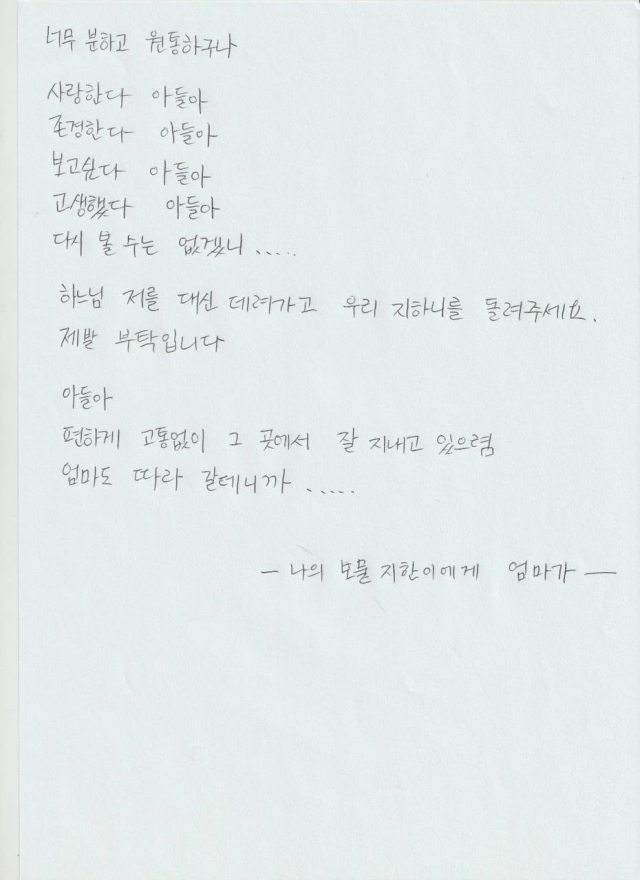 너무 분하고 원통하구나
사랑한다 아들아
존경한다 아들아
보고싶다 아들아
고생했다 아들아
다시 볼 수는 없겠니 .....
하느님 저를 대신 데려가고 우리 지하니를 돌려주세요.
제발 부탁입니다
아들아
편하게 고통없이 그 곳에서 잘 지내고 있으렴
엄마도 따라 갈테니까 .....
— 나의 보물 지한이에게 엄마가 —